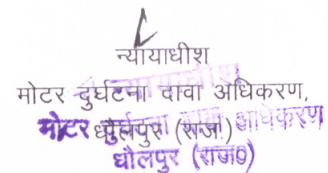 न्यायाधीश
मोटर दुर्घटना दावा अधिकरण,
धौलपुर (राज0)
न्यायाधीश
मोटर दुर्घटना दावा अधिकरण
धौलपुर (राज0)